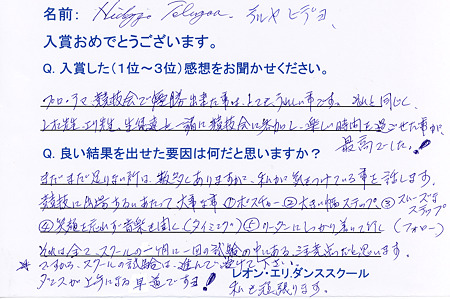 名前: Hideyo Teruya. テルヤ ヒデヨ
入賞おめでとうございます。
Q. 入賞した(1位～3位)感想をお聞かせください。
プロ・アマ競技会で優勝出来た事は、とても うれしい事です。それと同じく、
レオン先生、エリ先生、生徒達と一諸に競技会に参加して 楽しい時間を過ごせた事が、
最高でした!
Q. 良い結果を出せた要因は何だと思いますか?
まだまだ足りない所は、数多くありますが、私が気をつけている事を話します。
競技に出場するにあたって 大事な事 ①ポスチャー ②大きい幅のステップ ③スムーズなステップ
④笑顔を忘れず音楽を聞く(タイミング) ⑤リーダーにしっかり着いて行く(フォロー)
それは全て、スクールの一ヶ月に一回の試験の中にある、注意点だと思います。
※ですから、スクールの試験は、進んで受けて下さい。
ダンスが上手になる早道ですよ!
レオン・エリ.ダンススクール
私も頑張ります。